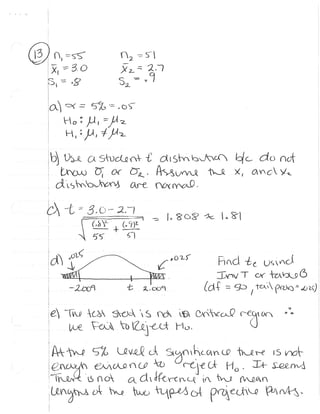 13) n₁=55 n₂=51
x̄₁=3.0 x̄₂=2.7
S₁=.8 S₂=.9
a) α=5%=.05
H₀: μ₁=μ₂
H₁: μ₁≠μ₂
b) Use a student t distribution b/c do not
know σ₁ or σ₂. Assume the x₁ and x₂
distributions are normal.
c) t= 3.0-2.7 = 1.808 ≈ 1.81
√ (.8)²/55 + (.9)²/51
d) .025 .025 Find tc using
InvT or table B
-2.009 t 2.009 (df=50, tail prob=.025)
e) The test stat is not in critical region ∴
we Fail to Reject H₀.
At the 5% Level of significance there is not
enough evidence to reject H₀. It seems
There is not a difference in the mean
lengths of the two types of projectile points.